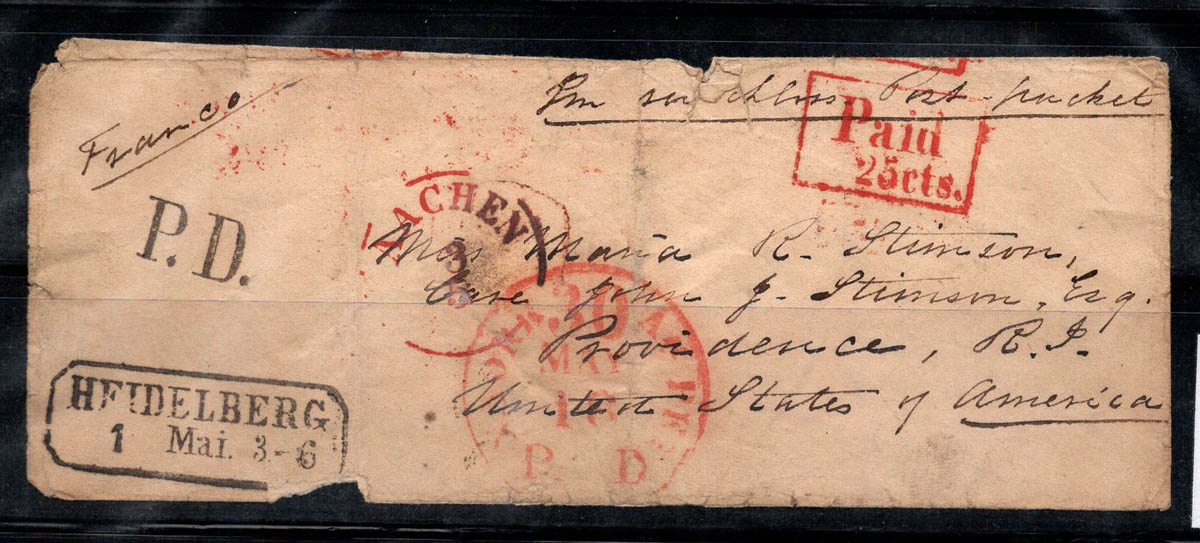 Franco
Post-packet
Paid
25cts.
P.D.
AACHEN
3
Miss Maria R. Stimson,
Care John J. Stimson, Esq.
Providence, R.I.
United States of America
30
MAY
P. D
HEIDELBERG
1 Mai. 3-6